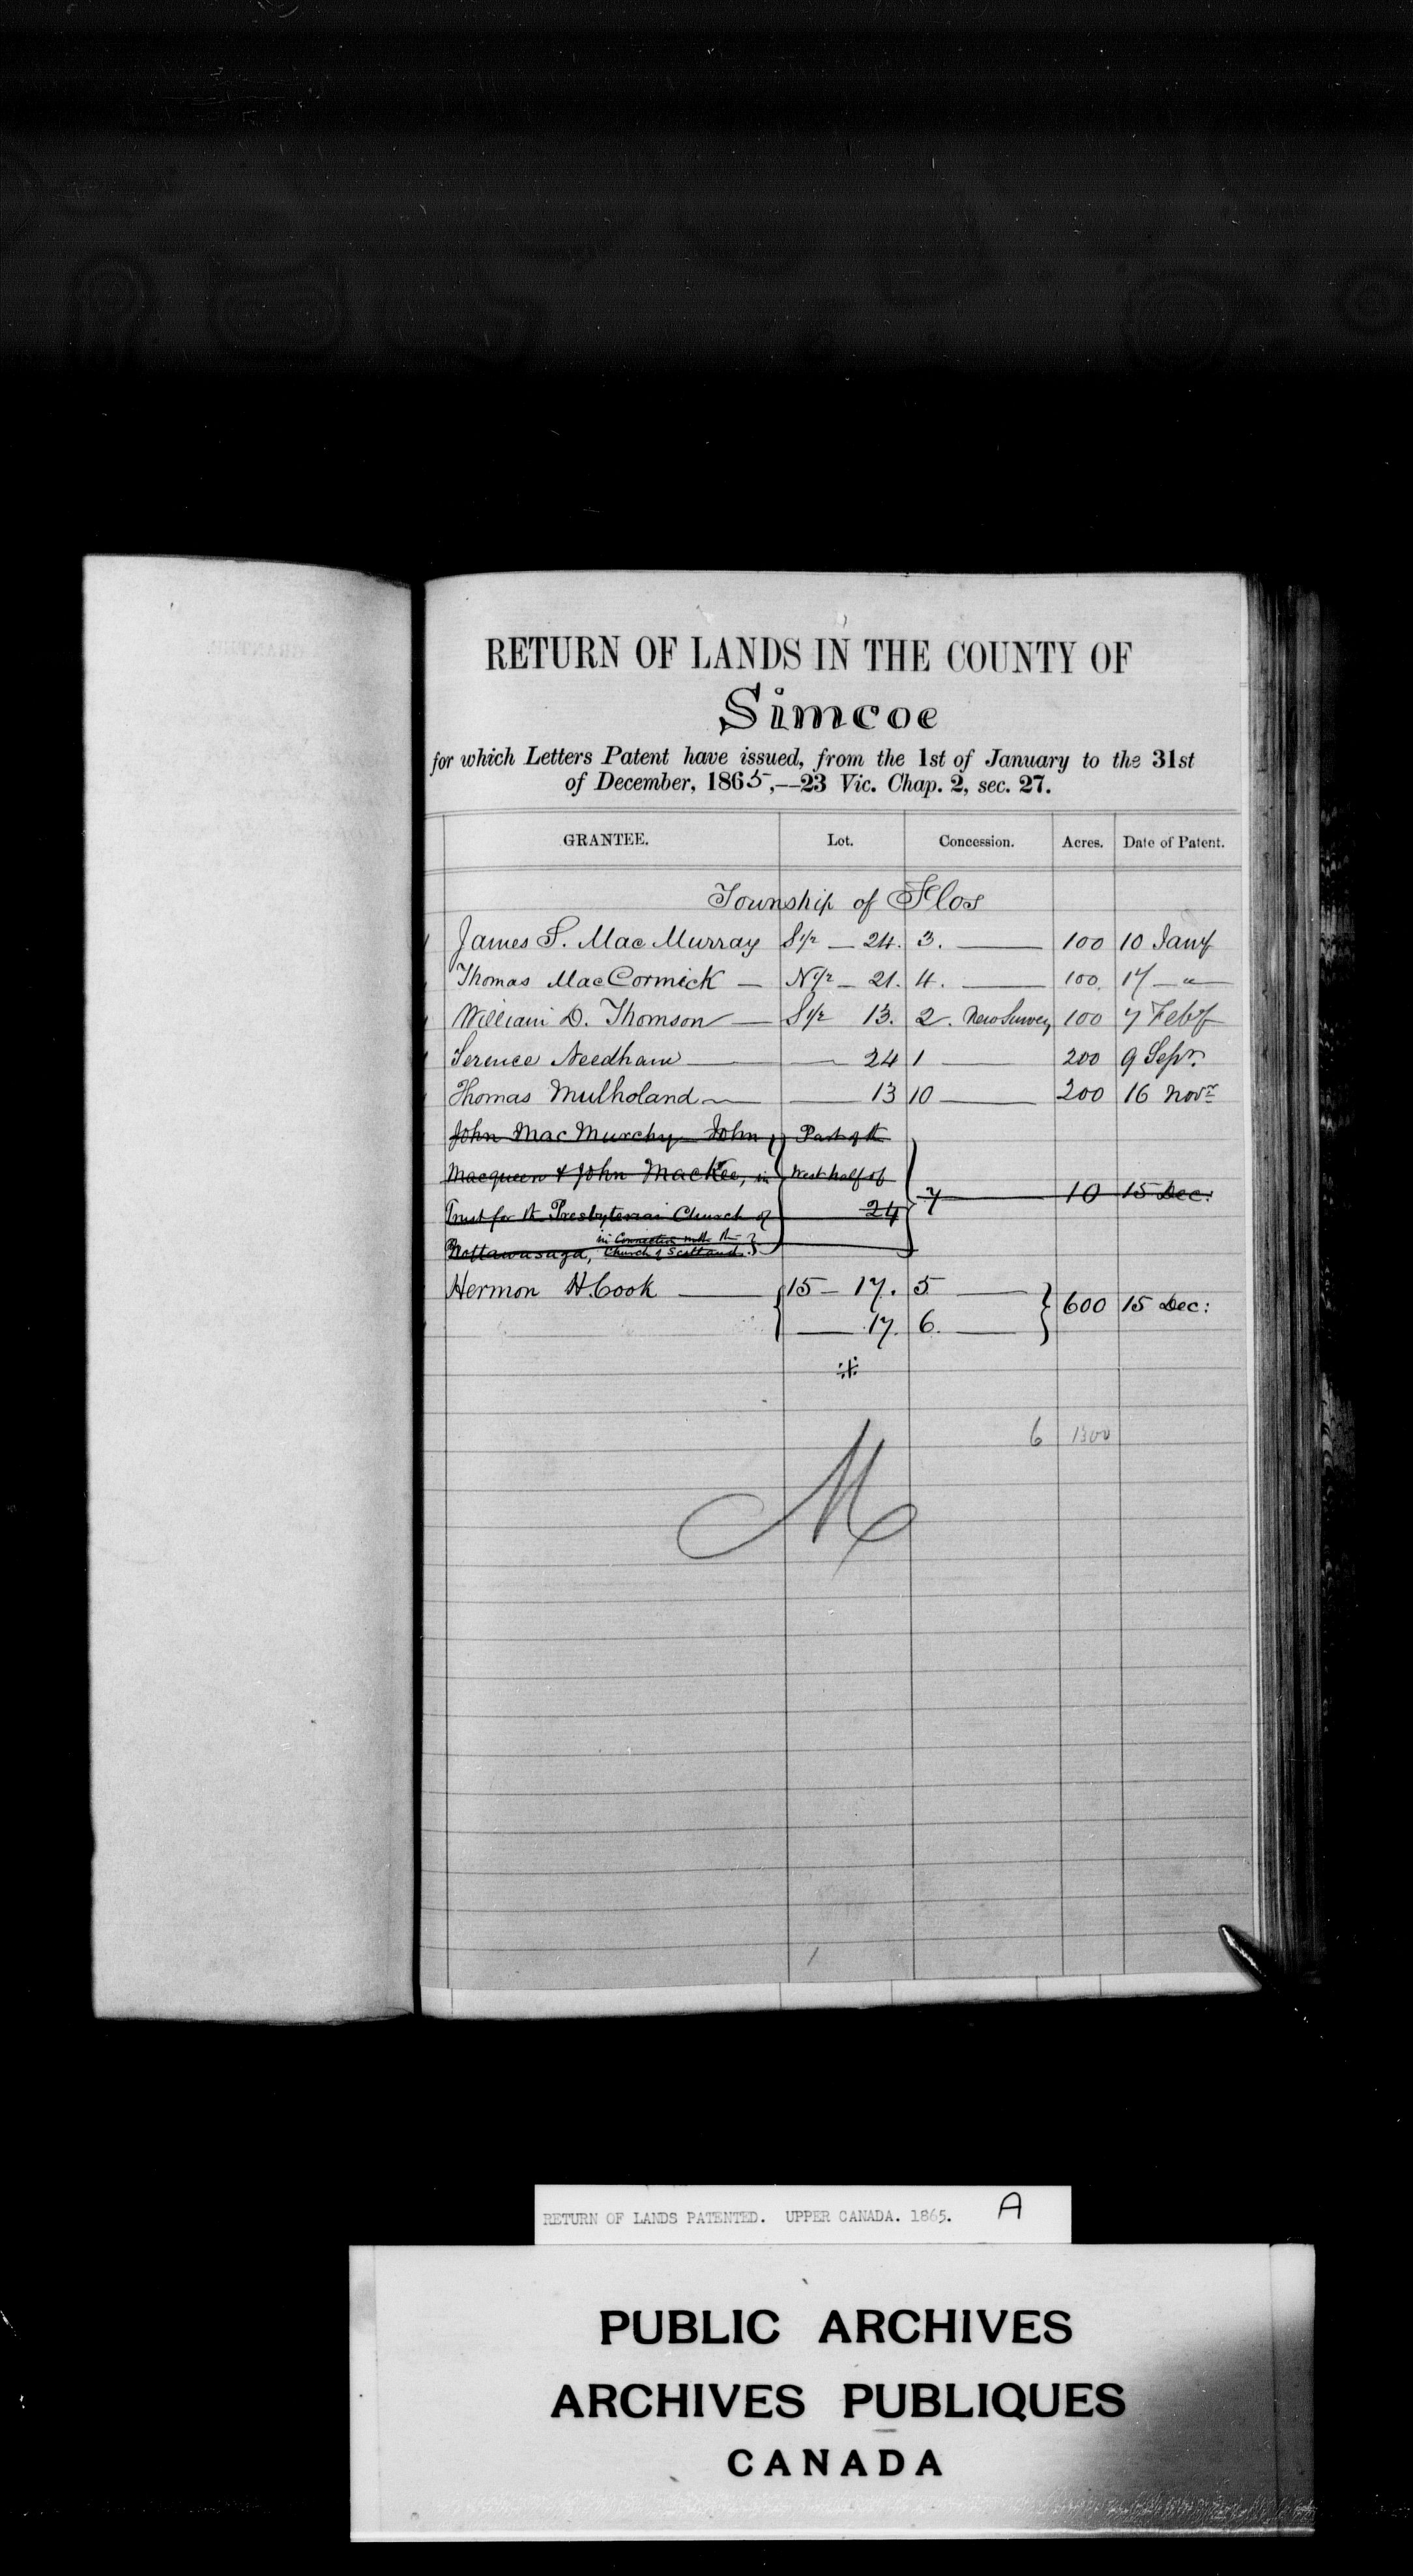 RETURN OF LANDS IN THE COUNTY OF
Simcoe
for which Letters Patent have issued, from the 1st of January to the 31st
of December, 1865,—23 Vic. Chap. 2, sec. 27.
GRANTEE. Lot. Concession. Acres. Date of Patent.
Township of Flos
James S. Mac Murray S 1/2 — 24. 3. — 100 10 Jany
Thomas MacCormick — N 1/2 — 21. 4. — 100. 17 — "
William D. Thomson — S 1/2 13. 2. New Survey 100 7 Feby
Terence Needham — — 24 1 — 200 9 Sepr.
Thomas Mulholand — — 13 10 — 200 16 Novr
John Mac Murchy John Part of the
Macqueen & John MacKee, in West half of
7 — 10 15 Dec:
Trust for the Presbyterian Church of 24
in Connection with the
Nottawasaga, Church of Scotland
Hermon H. Cook — 15 — 17. 5 —
600 15 Dec:
— 17. 6. —
6 1300
M
RETURN OF LANDS PATENTED. UPPER CANADA. 1865. A
PUBLIC ARCHIVES
ARCHIVES PUBLIQUES
CANADA